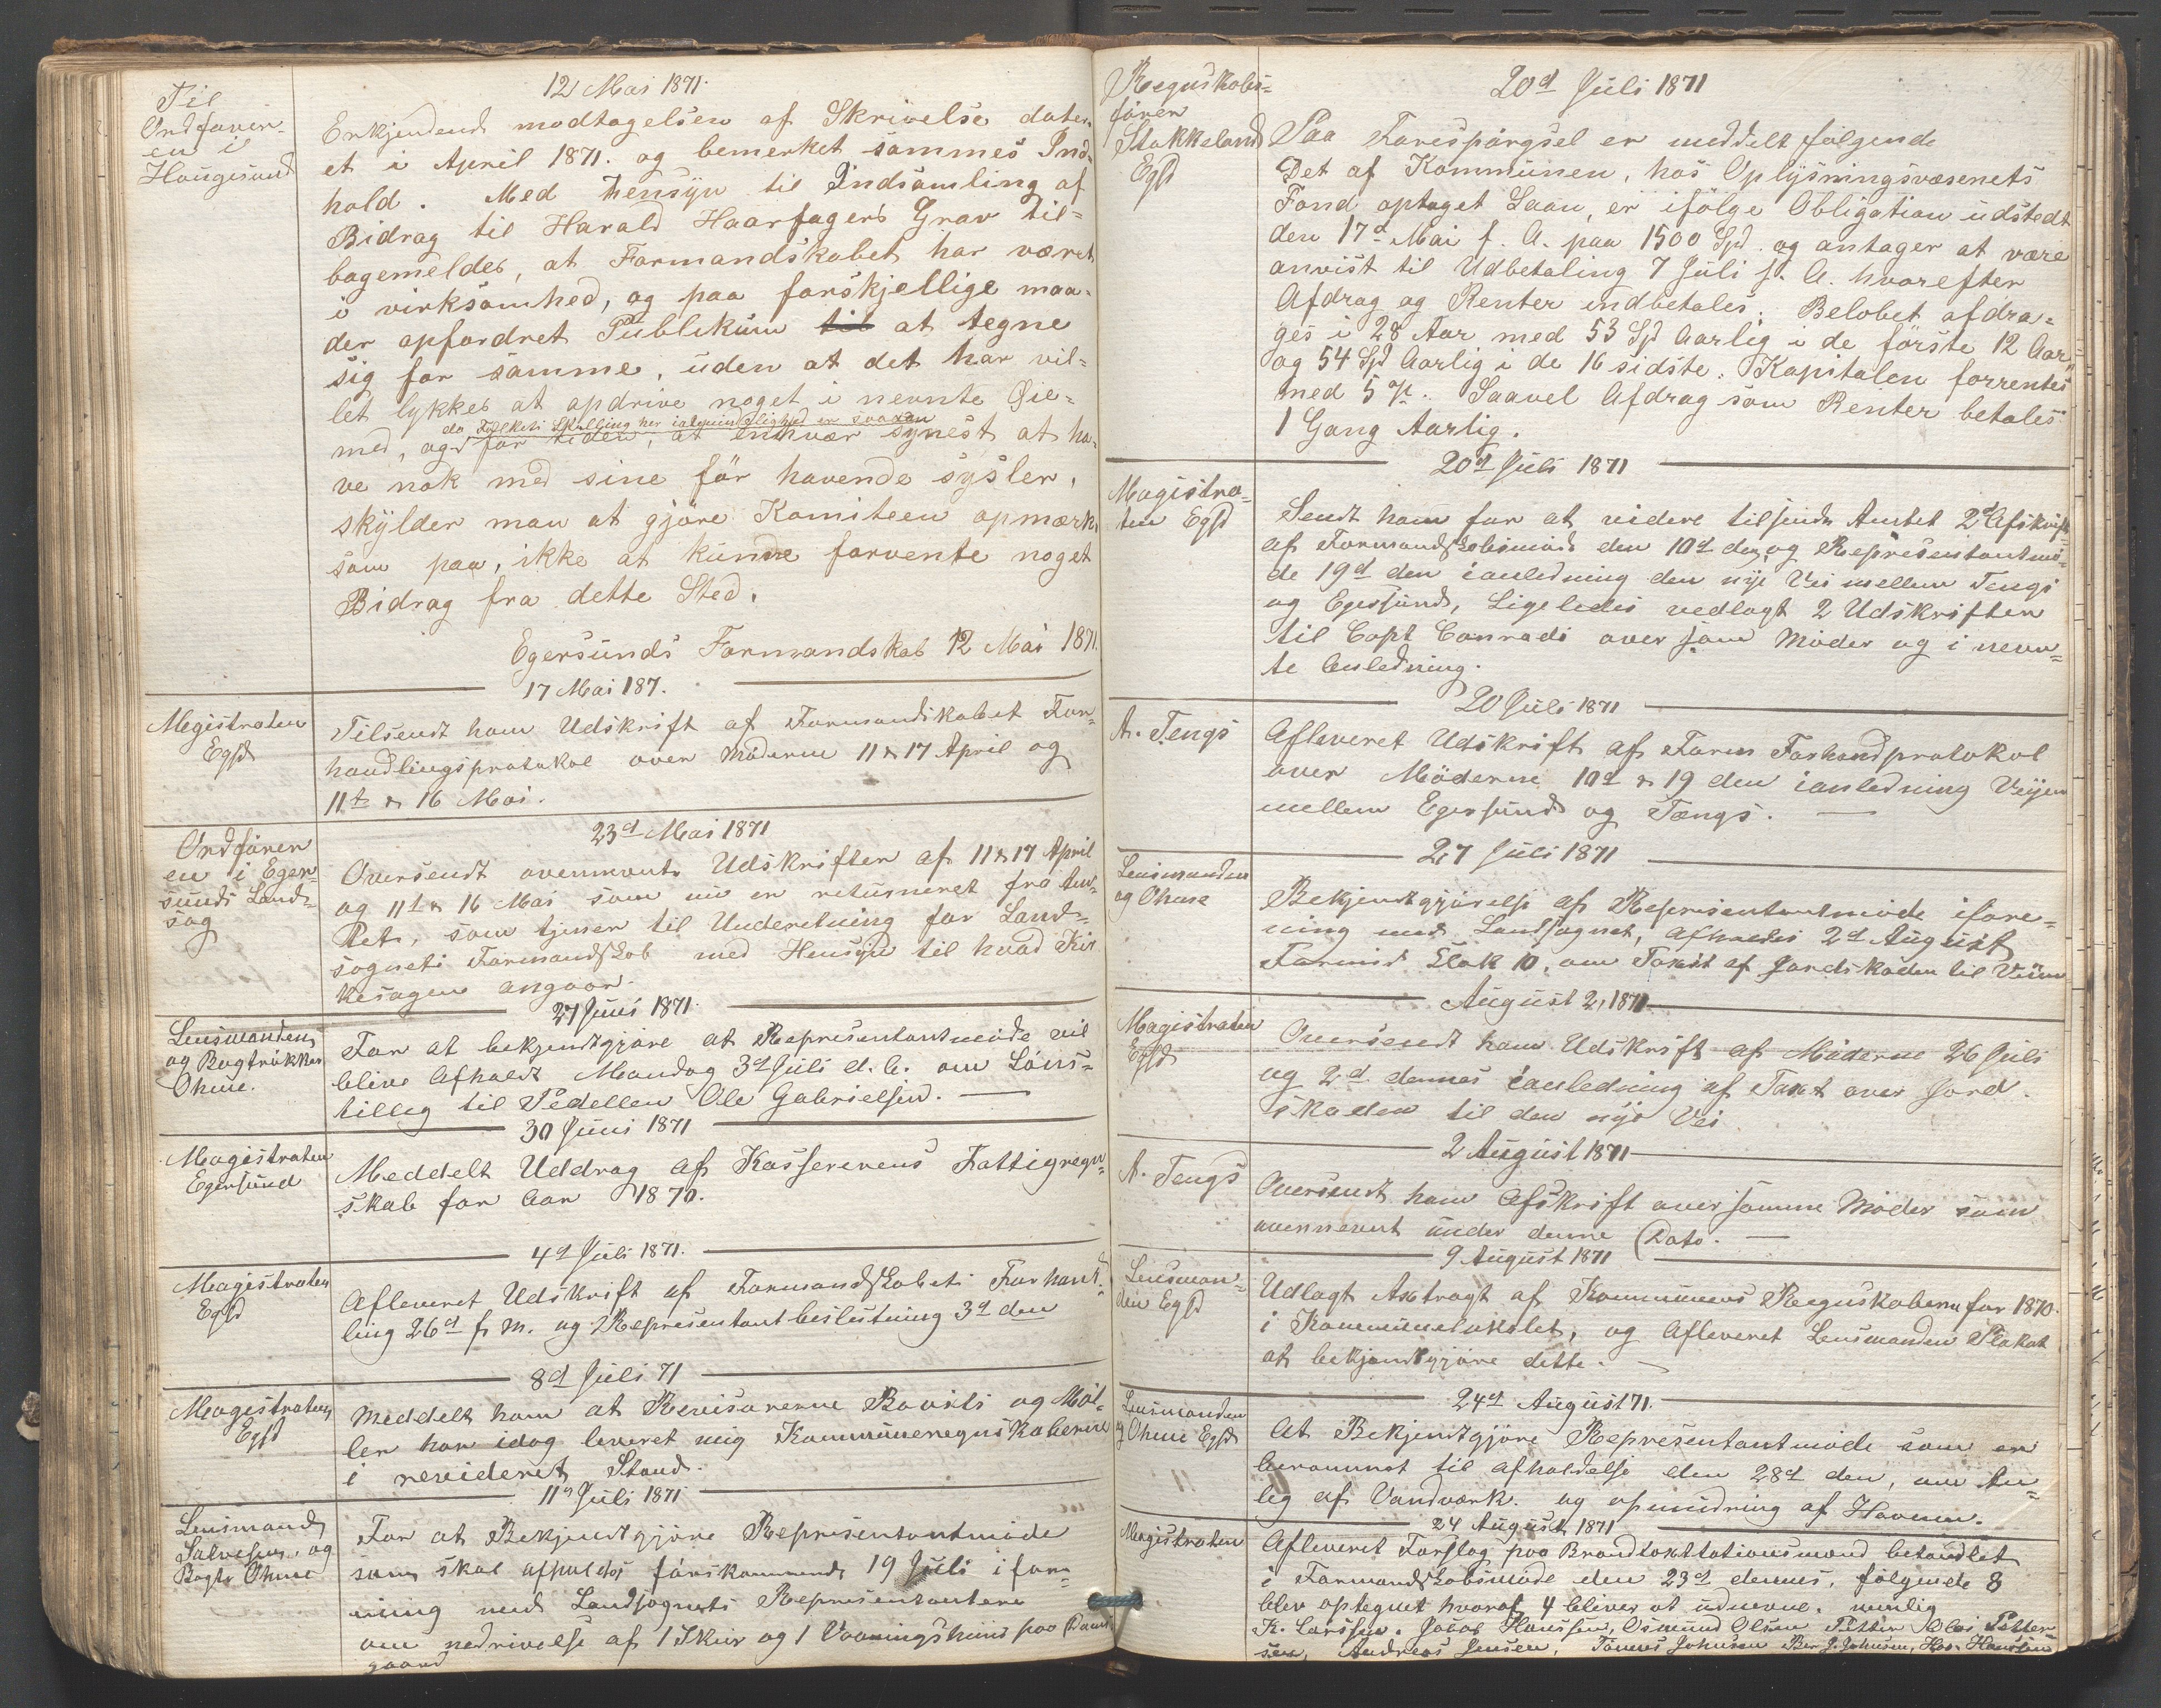 Til
Ordføren-
en i
Haugesund
12 Mai 1871.
Erkjendende modtagelsen af Skrivelse dater-
et i April 1871. og bemerket sammes Ind-
hold. Med hensyn til Indsamling af
Bidrag til Harald Haarfagers Grav til-
bagemeldes, at Formandskabet har været
i virksomhed, og paa forskjellige maa-
der opfordret Publikum til at tegne
sig for samme, uden at det har vil-
let lykkes at opdrive noget i nevnte Øie-
med, og for tiden, at enhvær synest at ha-
ve nok med sine før havende sysler,
skylder man at gjøre Komiteen opmærk-
som paa, ikke at kunde forvente noget
Bidrag fra dette Sted.
Egersunds Formandskab 12 Mai 1871.
17 Mai 187.
Magistraten
Egsd
Tilsendt ham Udskrift af Formandskabet For-
handlingsprotokol over Møderne 11 & 17 April og
11te & 16 Mai.
23d Mai 1871
Ordføren
en i Eger-
sunds Land-
sog
Oversendt ovennevnte Udskrifter af 11 & 17 April
og 11te & 16 Mai som nu er returneret fra Am-
tet, som tjener til Underetning for Land-
sognets Formandskab med Hensyn til hvad Kir
kesagen angaar.
27 Juni 1871.
Lensmanden
og Bogtrøkker
Ohme.
For at bekjendtgjøre at Representantmøde vil
blive Afholdt Mandag 3d Juli d. A. om Løns-
tilleg til Pedellen Ole Gabrielsen. —
30 Juni 1871
Magistraten
Egersund
Meddelt Uddrag af Kassererens Fattigregn-
skab for Aar 1870.
4d Juli 1871.
Magistraten
Egsd
Afleveret Udskrift af Formandskabets Forhand-
ling 26d f. M. og Representantbeslutning 3d den
8d Juli 71
Magistraten
Egsd
Meddelt ham at Revisorerne Baarts og Møl-
ler har idag leveret mig Kommuneregnskaberne
i revideret Stand.
11te Juli 1871
Lensmand
Salvesen og
Bogtr Ohme
For at Bekjendtgjøre Representantmøde
som skal afholdes førskommende 19 Juli i for-
ening med Landsognets Representantere
om nedrivelse af 1 Skur og 1 Vaaningshuus paa Dams
gaard
Regnskabs-
fører
Stokkeland
Egsd
20d Juli 1871
Paa Forespørgsel er meddelt følgende
Det af Kommunen, hos Oplysningsvæsenets
Fond optaget Laan, er ifølge Obligation udstedt
den 17d Mai f. A. paa 1500 Spd. og antager at være
anvist til Udbetaling 7 Juli f. A. hvorefter
Afdrag og Renter indbetales. Beløbet afdra-
ges i 28 Aar med 53 Spd Aarlig i de første 12 Aar
og 54 Spd Aarlig i de 16 sidste. Kapitalen forrentes
med 5 %. Saavel Afdrag som Renter betales
1 Gang Aarlig.
20d Juli 1871
Magistra-
ten Egsd
Sendt ham for at videre tilsende Amtet 2d Afskrift
af Formandskabsmøde den 10d den og Representantmø-
de 19d den ianledning den nye Vei mellem Tengs
og Egersund, Ligeledes vedlagt 2 Udskrifter
til Capt Conradi over samme Møder og i nevn-
te Anledning.
20 Juli 1871
A. Tengs
Afleveret Udskrift af Form Forhandprotokol
over Møderne 10d & 19 den ianledning Veien
mellem Egersund og Tængs. —
27 Juli 1871
Lensmanden
og Ohme
Bekjendtgjørelse af Representantmøde i fore-
ning med Landsognet, afholdes 2d August
Formid Slok 10, om Taxst af Jordskaden til Veien
August 2, 1871
Magistraten
Egsd
Oversendt ham Udskrift af Møderne 26 Juli
og 2d dennes ianledning af Taxt over Jord.
skaden til den nye Vei
2 August 1871
A. Tengs
Oversendt ham Afskrift over samme Møder som
ovennevnt under denne Dato. —
9 August 1871
Lensman-
den Egsd
Udlagt Axtragt af Kommunens Regnskaberne for 1870.
i Kommunelokalet, og Afleveret Lensmanden Plakat
at bekjendtgjøre dette. —
24d August 71.
Lensmanden
og Ohme Egsd
At Bekjendtgjøre Representantmøde som er
berammet til afholdelse den 28d den, om An-
leg af Vandværk. og opmudring af Havnen.
24 August 1871
Magistraten
Afleveret Forslag paa Brandtaxtationsmænd behandlet
i Formandskabsmøde den 23d dennes, følgende 8
blev optegnet hvoraf 4 bliver at udnevne. nemlig
K. Larssen, Jacob Hanssen, Osmund Olsen Petter Olai Petter
sen, Andreas Jensen, Tønnes Johnsen Ber J. Johnsen, Has. Hanssen